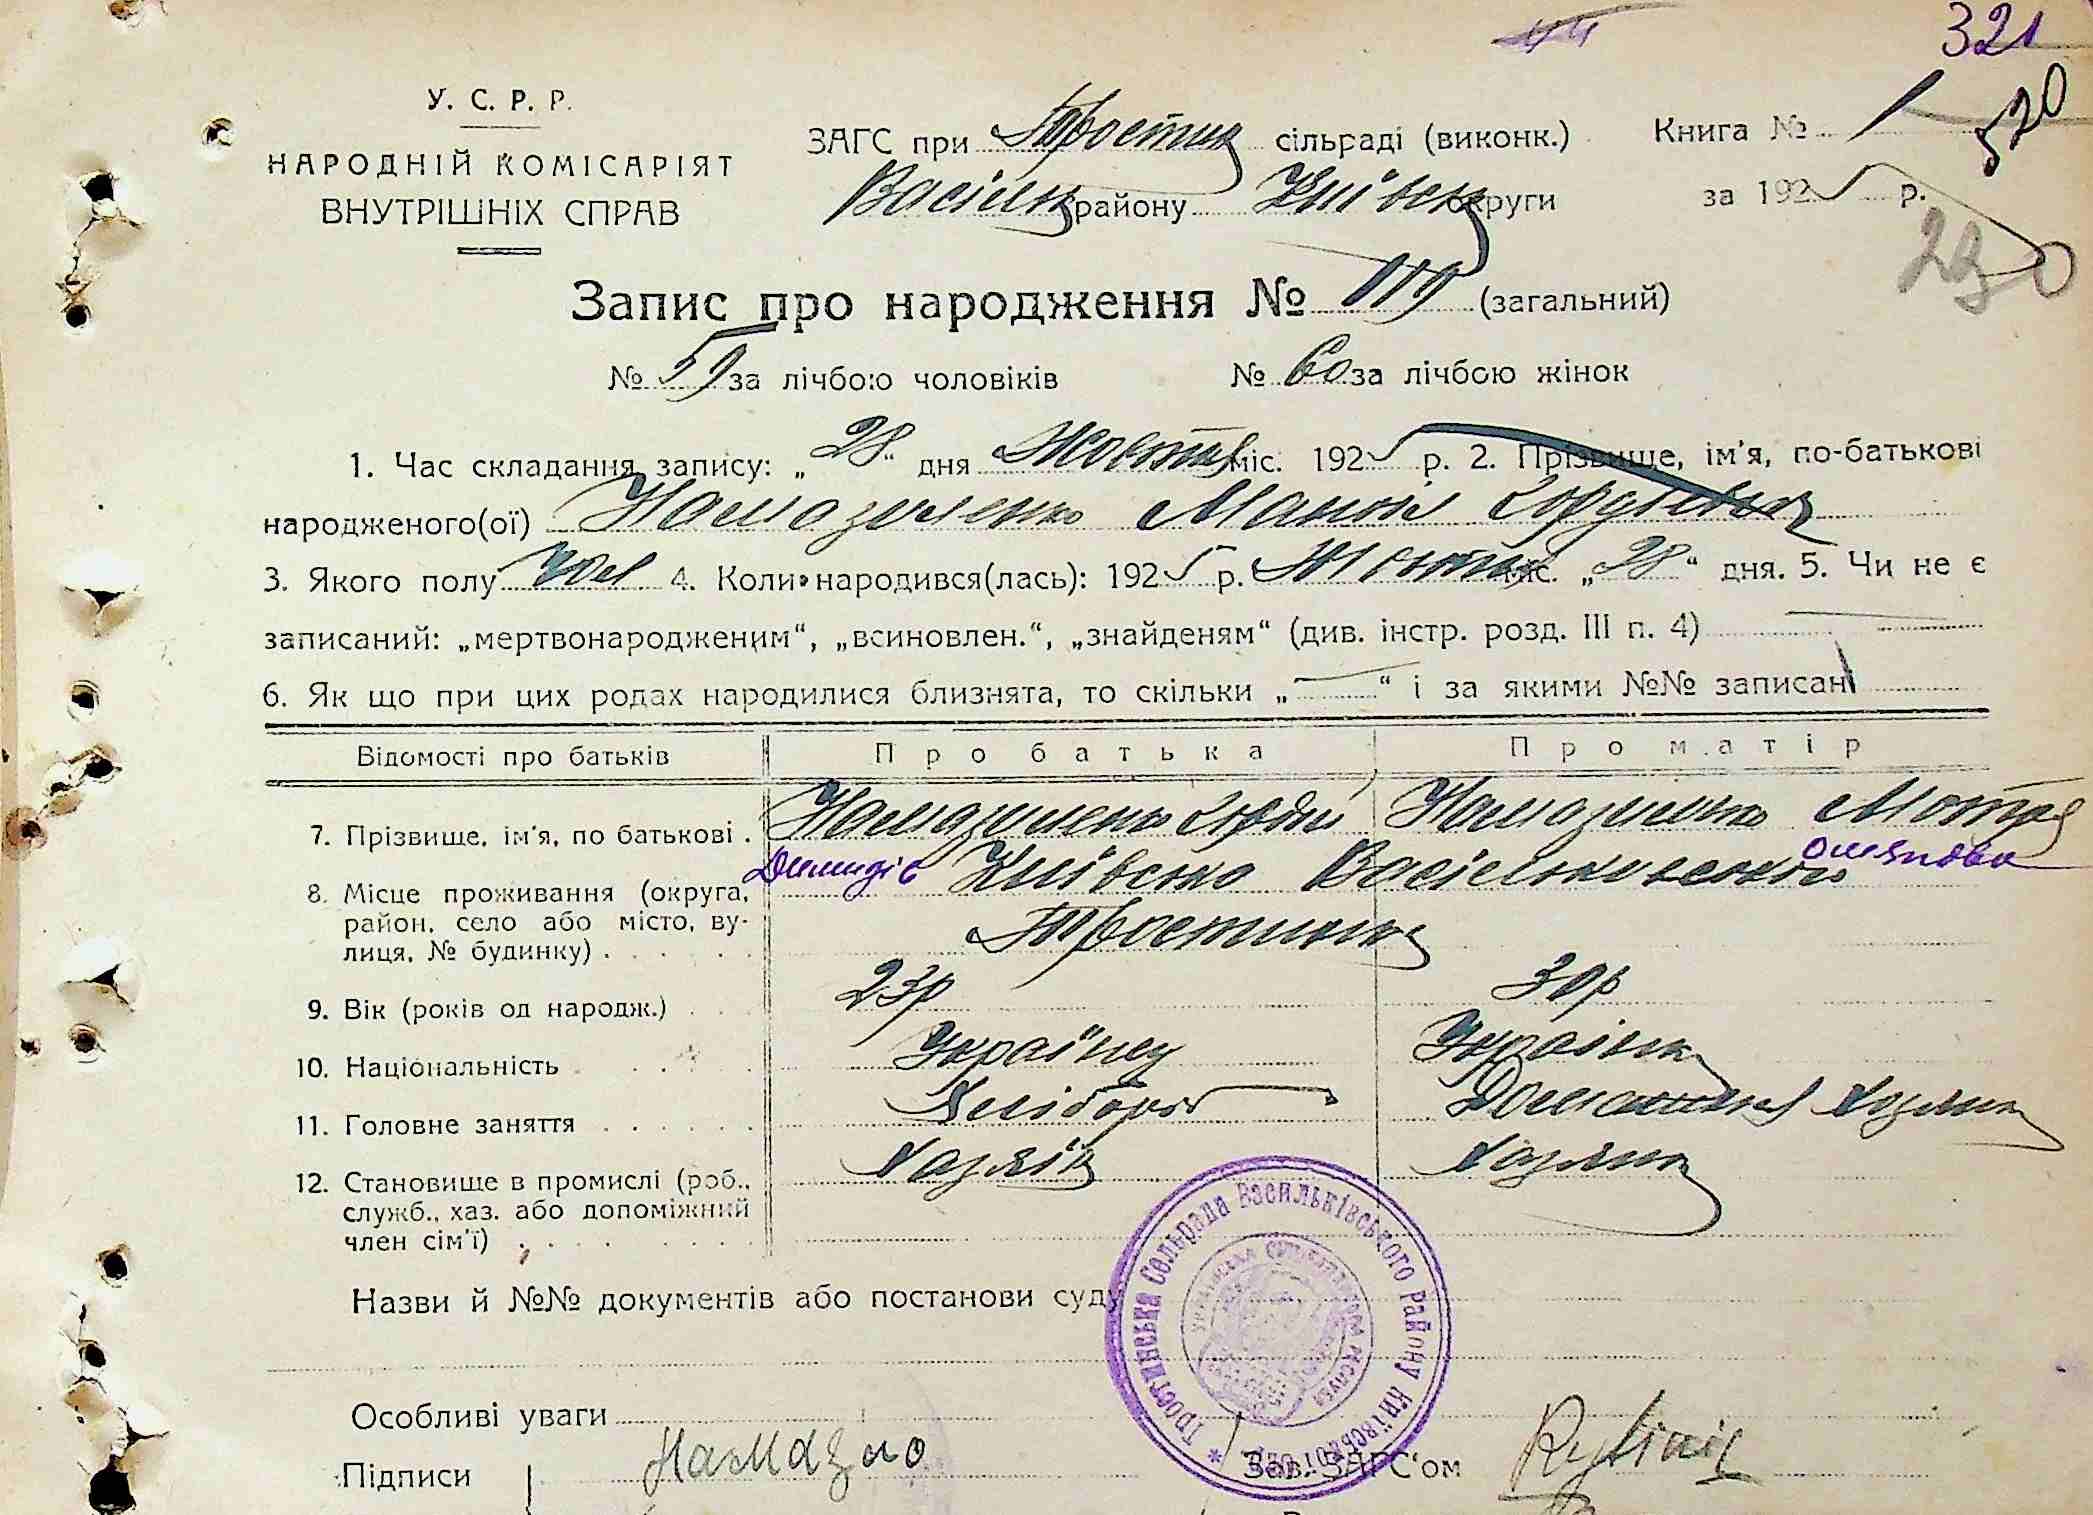 321
520
У. С. Р. Р.
НАРОДНІЙ КОМІСАРІЯТ
ВНУТРІШНІХ СПРАВ
ЗАГС при Тростин сільраді (виконк.)
Васільк району Київськ округи
Книга № 1
за 1925 р.
230
Запис про народження № 119 (загальний)
№ 59 за лічбою чоловіків № 60 за лічбою жінок
1. Час складання запису: „28“ дня Жовтня міс. 1925 р. 2. Прізвище, ім'я, по-батькові
народженого(ої) Намазиленко
3. Якого полу чол 4. Коли народився(лась): 1925 р. Жовтня міс. „28“ дня. 5. Чи не є
записаний: „мертвонародженим“, „всиновлен.“, „знайденям“ (див. інстр. розд. III п. 4)
6. Як що при цих родах народилися близнята, то скільки „—“ і за якими №№ записані
Відомості про батьків Про батька Про матір
7. Прізвище, ім'я, по батькові . Намазиленко Намазиленко Мотря
Демидів
8. Місце проживання (округа, район, село або місто, вулиця, № будинку) . Київська Васільковський
Тростинка
9. Вік (років од народж.) 23р 30р
10. Національність Українец Українка
11. Головне заняття Хлібороб Домашня хазяйка
12. Становище в промислі (роб., служб., хаз. або допоміжний член сім'ї) . Хазяїн Хазяйка
Назви й №№ документів або постанови суду
Тростинська Сельрада Васильківського Району Київської Окр.
Особливі уваги
Підписи Намазло Зав. ЗАГС'ом